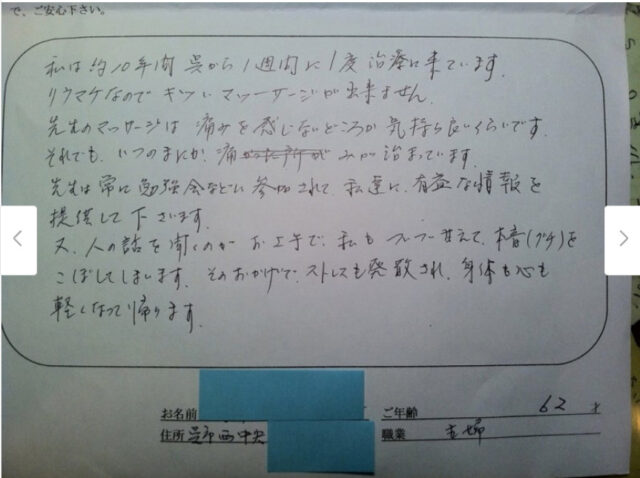 で、ご安心下さい。
私は約10年間呉から1週間に1度治療に来ています。
リウマチなのでキツいマッサージが出来ません。
先生のマッサージは痛みを感じないどころか気持ち良いくらいです。
それでも、いつのまにか、痛かった所がみが治まっています。
先生は常に勉強会などに参加されて、私達に、有益な情報を
提供して下さいます。
又、人の話を聞くのがお上手で、私もついつい甘えて、本音(グチ)を
こぼしてしまいます。そのおかげで、ストレスも発散され、身体も心も
軽くなって帰ります。
お名前
ご年齢 62 才
住所 呉市西中央
職業 主婦